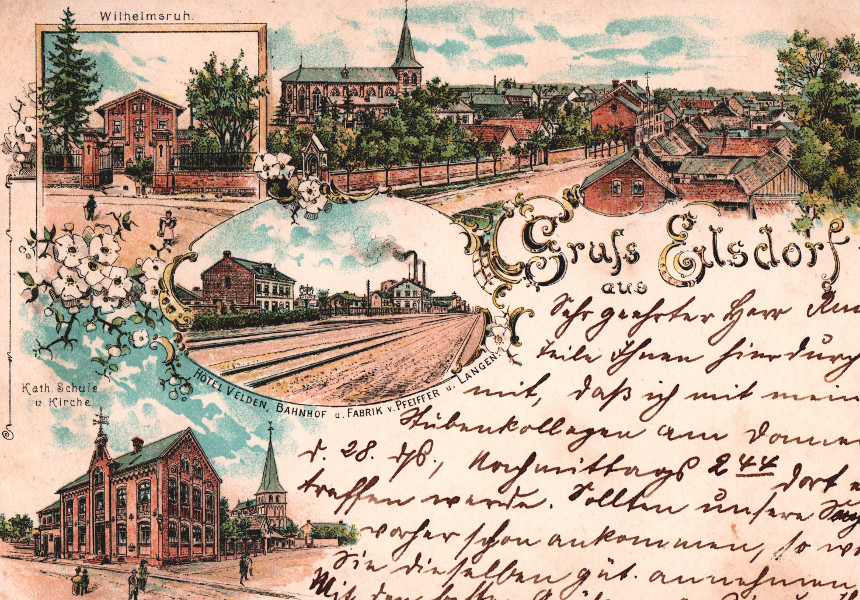 Wilhelmsruh.
Gruss
aus
Elsdorf
HÔTEL VELDEN, BAHNHOF u. FABRIK v. PFEIFFER u. LANGEN
Kath. Schule
u Kirche
Sehr geehrter Herr
Teile Ihnen hierdurch
mit, daß ich mit mein
Stubenkollegen am Donner
d. 28. ds., Nachmittags 2 44 dort
treffen werde. Sollten unsere
vorher schon ankommen, so
Sie dieselben güt. annehmen
Mit den besten